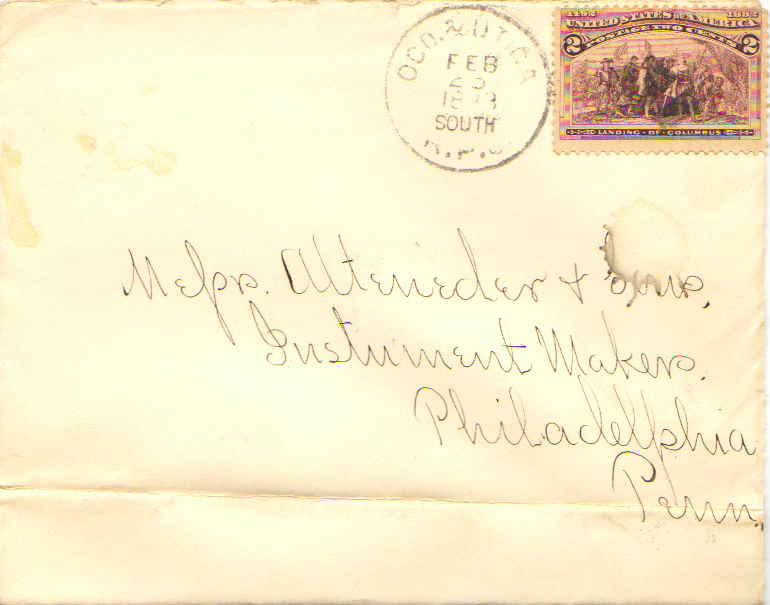 OGD. & UTICA
FEB
23
1893
SOUTH
R.P.O.
1492 1892
UNITED STATES OF AMERICA
2 POSTAGE TWO CENTS 2
LANDING OF COLUMBUS
Messrs. Alteneder & Sons,
Instrument Makers.
Philadelphia
Penn.